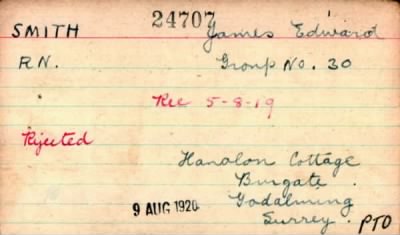 24707
SMITH James Edward
R.N. Group No. 30
Rec 5-8-19
Rejected
Cottage
Burgate
9 AUG 1920 Godalming
Surrey. PTO